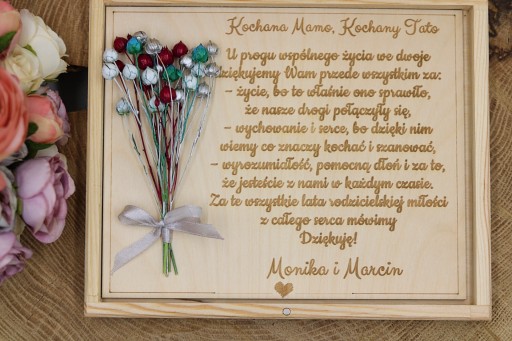 Kochana Mamo, Kochany Tato
U progu wspólnego życia we dwoje
dziękujemy Wam przede wszystkim za:
– życie, bo to właśnie ono sprawiło,
że nasze drogi połączyły się,
– wychowanie i serce, bo dzięki nim
wiemy co znaczy kochać i szanować,
– wyrozumiałość, pomocną dłoń i za to,
że jesteście z nami w każdym czasie.
Za te wszystkie lata rodzicielskiej miłości
z całego serca mówimy
Dziękuję!
Monika i Marcin